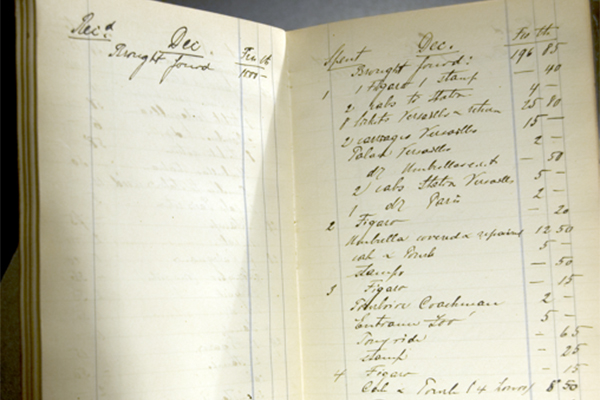 Rec.d Dec. Frs. th
Brought forwd 1000 -
Spent Dec. Frs. th
Brought forwd: 196 85
1 1 Figaro 1 stamp - 40
2 cabs to Station 4 -
8 tickets Versailles & return 25 80
2 carriages Versailles 15 -
Palace Versailles 2 -
do Umbrellas - 50
2 cabs Station Versailles 5 -
1 do Paris 2 -
2 Figaro - 20
Umbrella covered & repaired 12 50
cab & 5 -
stamps - 50
3 Figaro - 15
Coachman 2 -
Entrance Zoo 5 -
Pony ride - 65
stamp - 25
4 Figaro - 15
Cab & (4 hours) 8 50